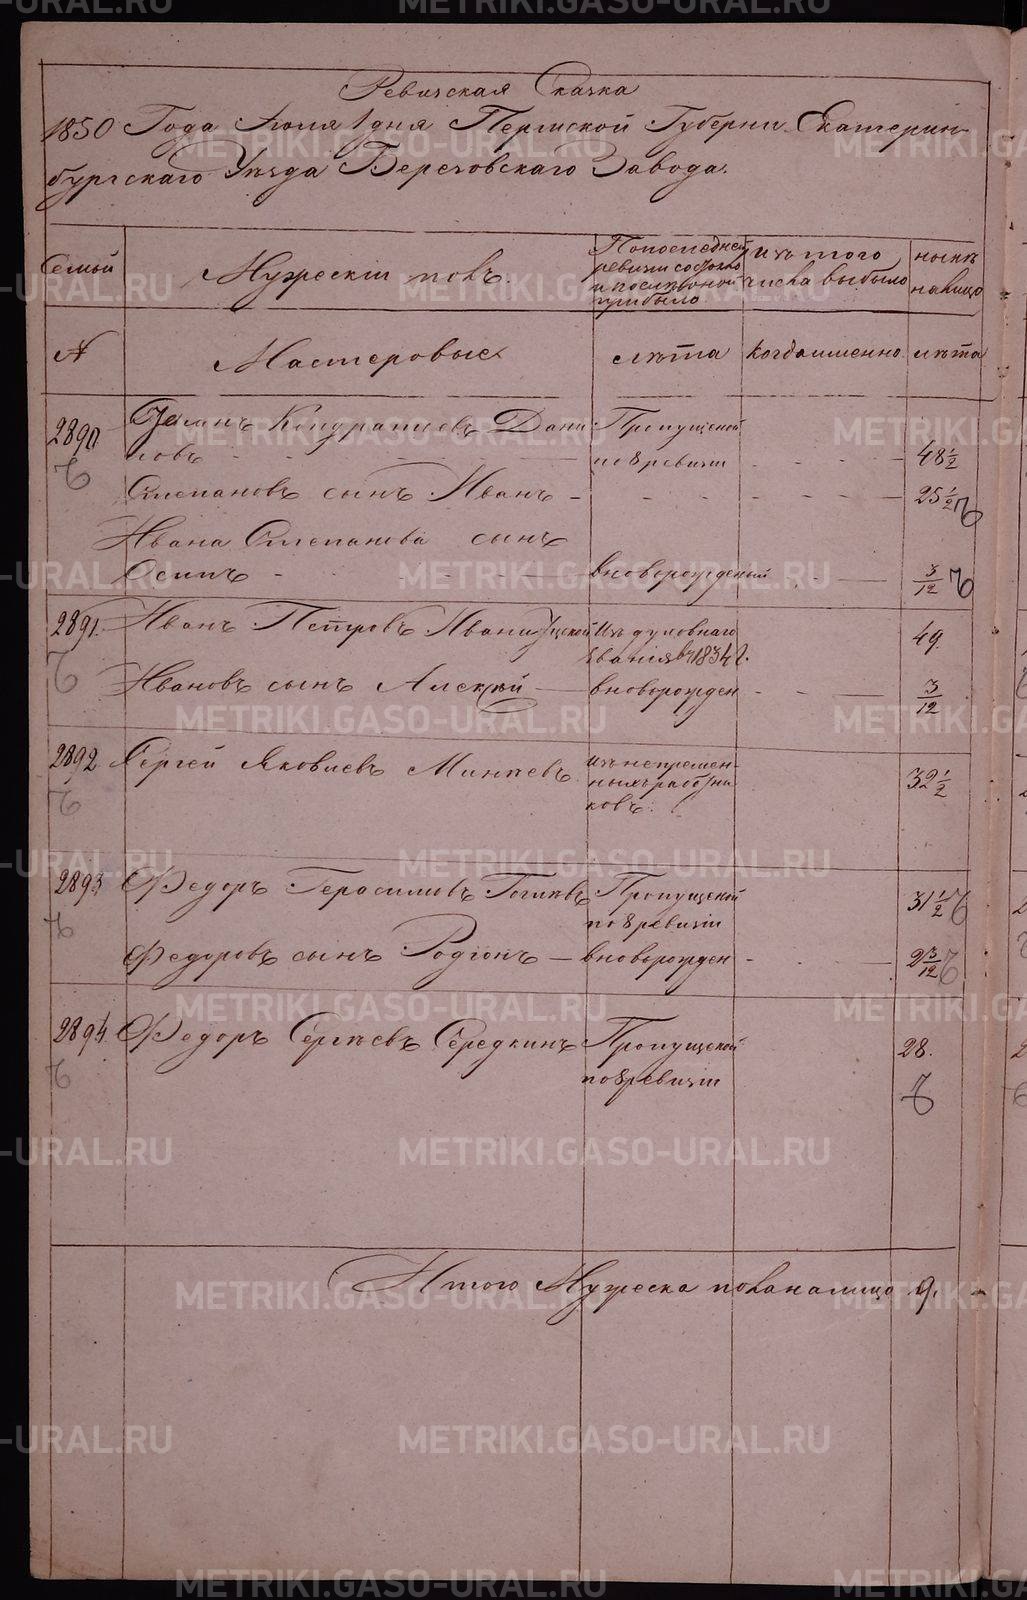 Ревизская Сказка
1850 Года Июля 1 дня Пермской Губернии Екатерин-
бургскаго Уезда Березовскаго Завода.
Семьи
Мужескiй полъ.
По последней
ревизiи состояло
и после оной
прибыло
изъ того
числа выбыло
ныне
на лицо
№
Мастеровые
лѣта
когда именно
лѣта
2890
Кондратьевъ Дани-
ловъ
Пропущеной
по 8 ревизiи
48 1/2
Степановъ сынъ Иванъ
25 1/2
Ивана Степанова сынъ
Осипъ
вноворожденый
3/12
2891.
Иванъ Петровъ
Изъ духовнаго
званiя в 1834 г.
49.
Ивановъ сынъ Алексѣй
вноворожден
3/12
2892
Сергей Яковлевъ Минѣевъ
изъ непремен-
ныхъ работни-
ковъ.
32 1/2
2893
Федоръ Герасимовъ
Пропущеной
по 8 ревизiи
31 1/2
Федоровъ сынъ Родiонъ
вноворожден
2 3/12
2894.
Федоръ Сергѣевъ Середкинъ
Пропущеной
по 8 ревизiи
28.
Итого Мужеска пола на лицо 9.
METRIKI.GASO-URAL.RU